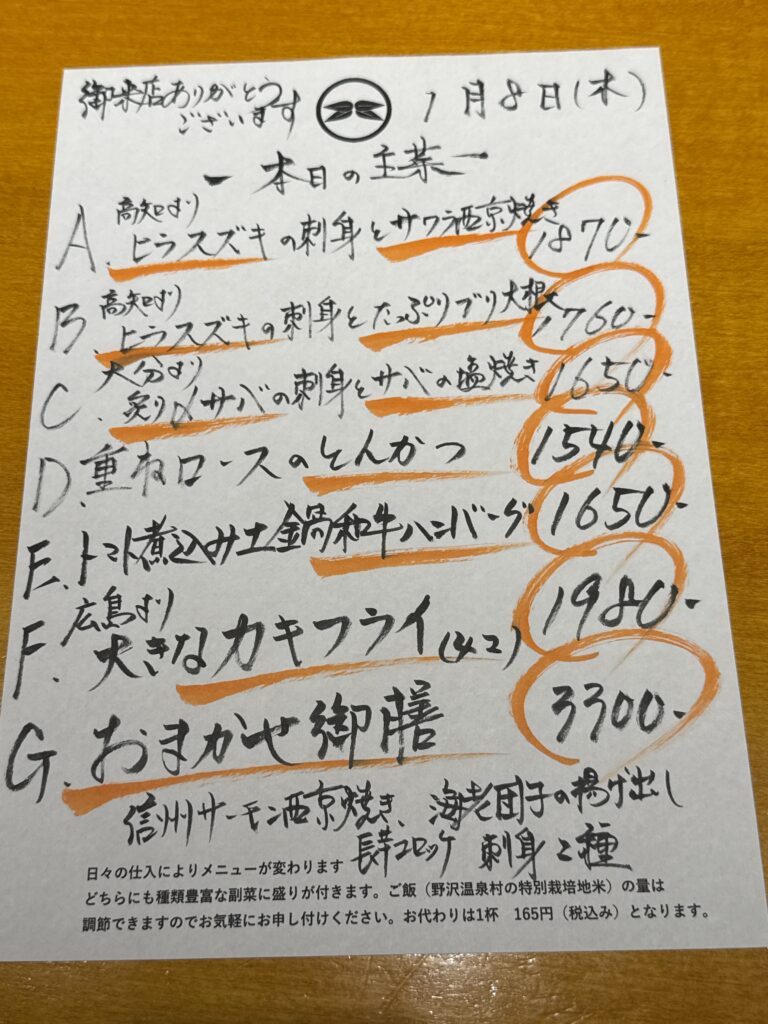 御来店ありがとう
ございます
1月8日(木)
ー本日の主菜ー
高知より
A.ヒラスズキの刺身とサワラ西京焼き 1870-
高知より
B.ヒラスズキの刺身とたっぷりブリ大根 1760-
大分より
C.炙り〆サバの刺身とサバの塩焼き 1650-
D.重ねロースのとんかつ 1540-
E.トマト煮込み土鍋和牛ハンバーグ 1650-
広島より
F.大きなカキフライ(4コ) 1980-
G.おまかせ御膳 3300-
信州サーモン西京焼き、海老団子の揚げ出し
長芋コロッケ 刺身2種
日々の仕入によりメニューが変わります
どちらにも種類豊富な副菜に盛りが付きます。ご飯(野沢温泉村の特別栽培地米)の量は
調節できますのでお気軽にお申し付けください。お代わりは1杯 165円(税込み)となります。